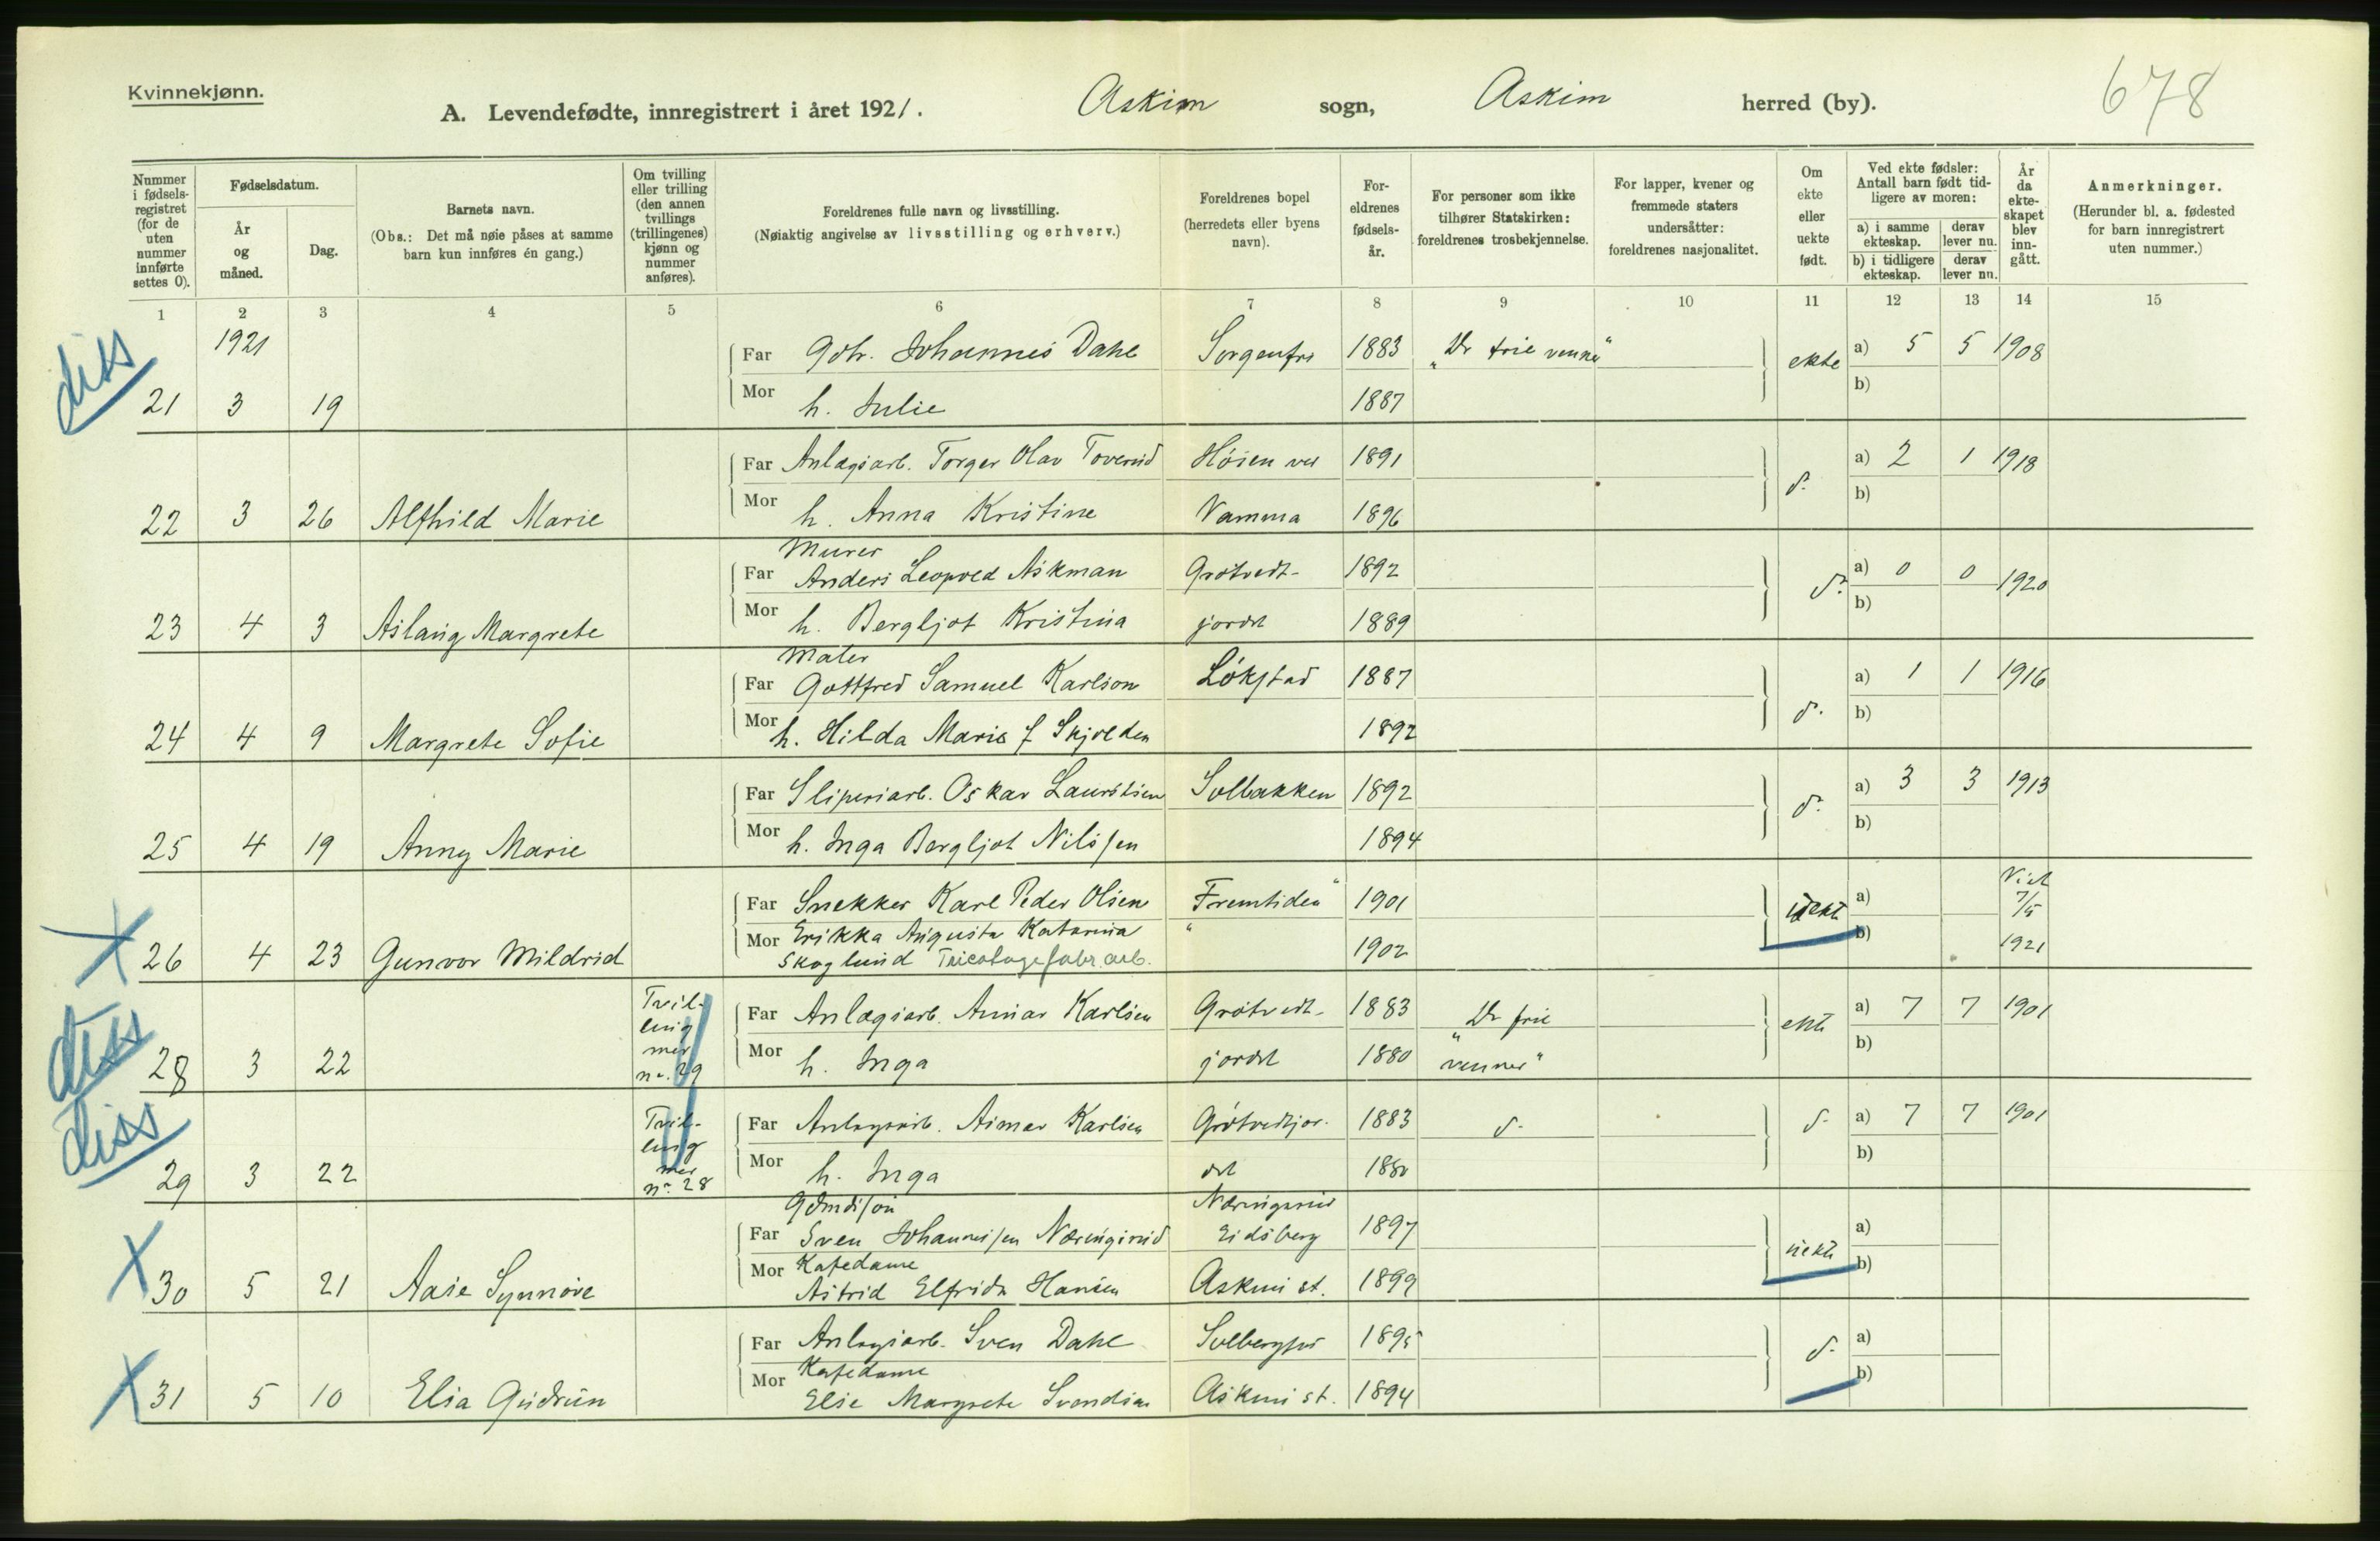 Kvinnekjønn.
A. Levendefødte, innregistrert i året 1921. Askim sogn, Askim herred (by). 678
Nummer i fødselsregistret (for de uten nummer innførte settes 0).
Fødselsdatum.
År og måned.
Dag.
Barnets navn.
(Obs.: Det må nøie påses at samme barn kun innføres én gang.)
Om tvilling eller trilling (den annen tvillings (trillingenes) kjønn og nummer anføres).
Foreldrenes fulle navn og livsstilling.
(Nøiaktig angivelse av livsstilling og erhverv.)
Foreldrenes bopel (herredets eller byens navn).
Foreldrenes fødselsår.
For personer som ikke tilhører Statskirken: foreldrenes trosbekjennelse.
For lapper, kvener og fremmede staters undersåtter: foreldrenes nasjonalitet.
Om ekte eller uekte født.
Ved ekte fødsler: Antall barn født tidligere av moren:
a) i samme ekteskap. derav lever nu.
b) i tidligere ekteskap. derav lever nu.
År da ekteskapet blev inngått.
Anmerkninger.
(Herunder bl. a. fødested for barn innregistrert uten nummer.)
1 2 3 4 5 6 7 8 9 10 11 12 13 14 15
diss 1921 Far Johannes Dahl Sorgenfri 1883 "De frie venner" ekte a) 5 5 1908
21 3 19 Mor h. Julie 1887 b)
Far Anlægsarb. Torger Olav Toverud Høien ved 1891 d. a) 2 1 1918
22 3 26 Alfhild Marie Mor h. Anna Kristine Vamma 1896 b)
Murer
Far Anders Leopold Askman Grøtvedt- 1892 d. a) 0 0 1920
23 4 3 Aslaug Margrete Mor h. Bergljot Kristina jordet 1889 b)
Maler
Far Gottfred Samuel Karlson Løkstad 1887 d. a) 1 1 1916
24 4 9 Margrete Sofie Mor h. Hilda Marie f Skjolden 1892 b)
Far Sliperiarb. Oskar Lauritsen Solbakken 1892 d. a) 3 3 1913
25 4 19 Anny Marie Mor h. Inga Bergljot Nilssen 1894 b)
Far Snekker Karl Peder Olsen Fremtiden" 1901 uekte a) Viet 7/5 1921
26 4 23 Gunvor Mildrid Mor Erikka Augusta Katarina " 1902 b)
Skoglund Tricotagefabr.arb.
diss Tvilling Far Anlægsarb. Karlsen Grøtvedt- 1883 "De frie ekte a) 7 7 1901
28 3 22 med nr. 29 Mor h. Inga jordet 1880 venner" b)
diss Tvilling Far Anlægsarb. Karlsen Grøtvedtjor- 1883 d. d. a) 7 7 1901
29 3 22 med nr. 28 Mor h. Inga det 1880 b)
Far Sven Johannessen Næringsrud Eidsberg 1897 uekte a)
Kafedame
30 5 21 Aase Synnøve Mor Astrid Elfrida Hansen Askim st. 1899 b)
Far Anlægsarb. Sven Dahl Solbergfos 1895 d. a)
Kafedame
31 5 10 Elsa Gudrun Mor Else Margrete Svendsen Askim st. 1894 b)